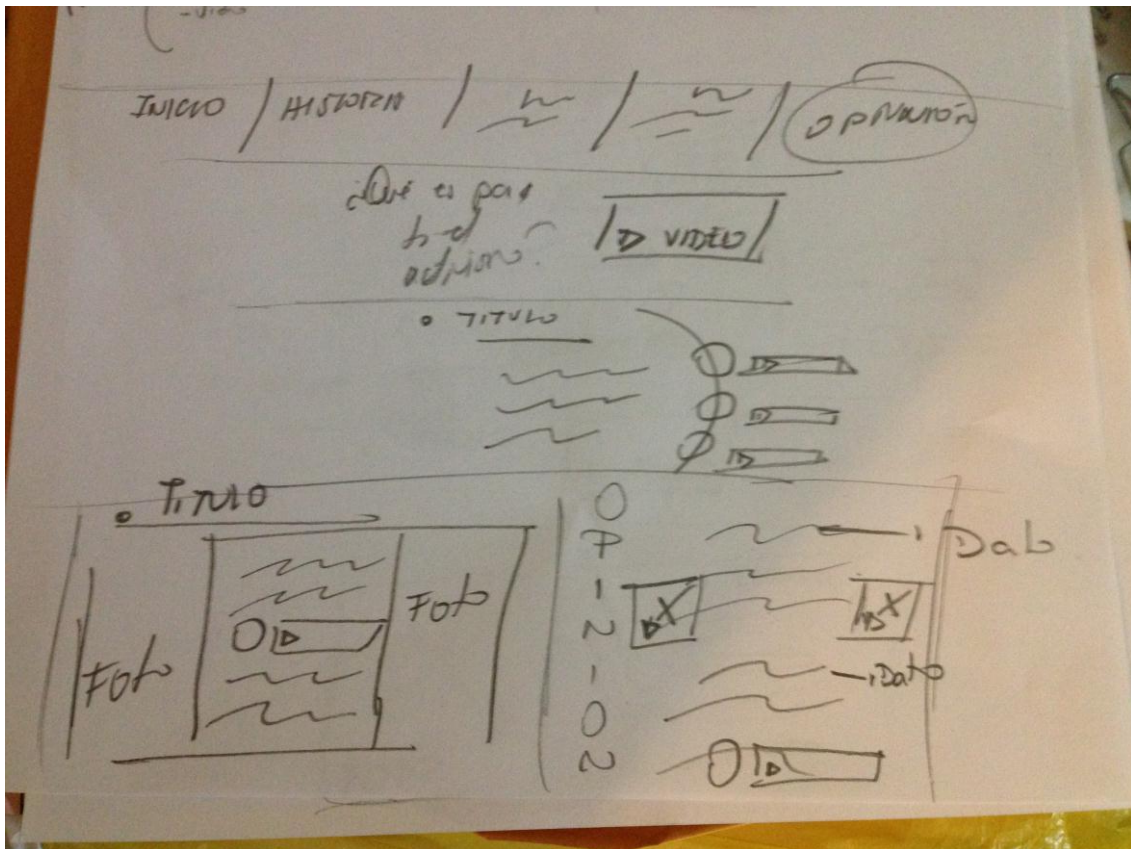 - VIDEO
INICIO / HISTORIA / / / OPINIÓN
¿Qué es para
ti el
activismo?
VIDEO
• TITULO
• TITULO
FOTO
FOTO
OPINION
Dato
Dato